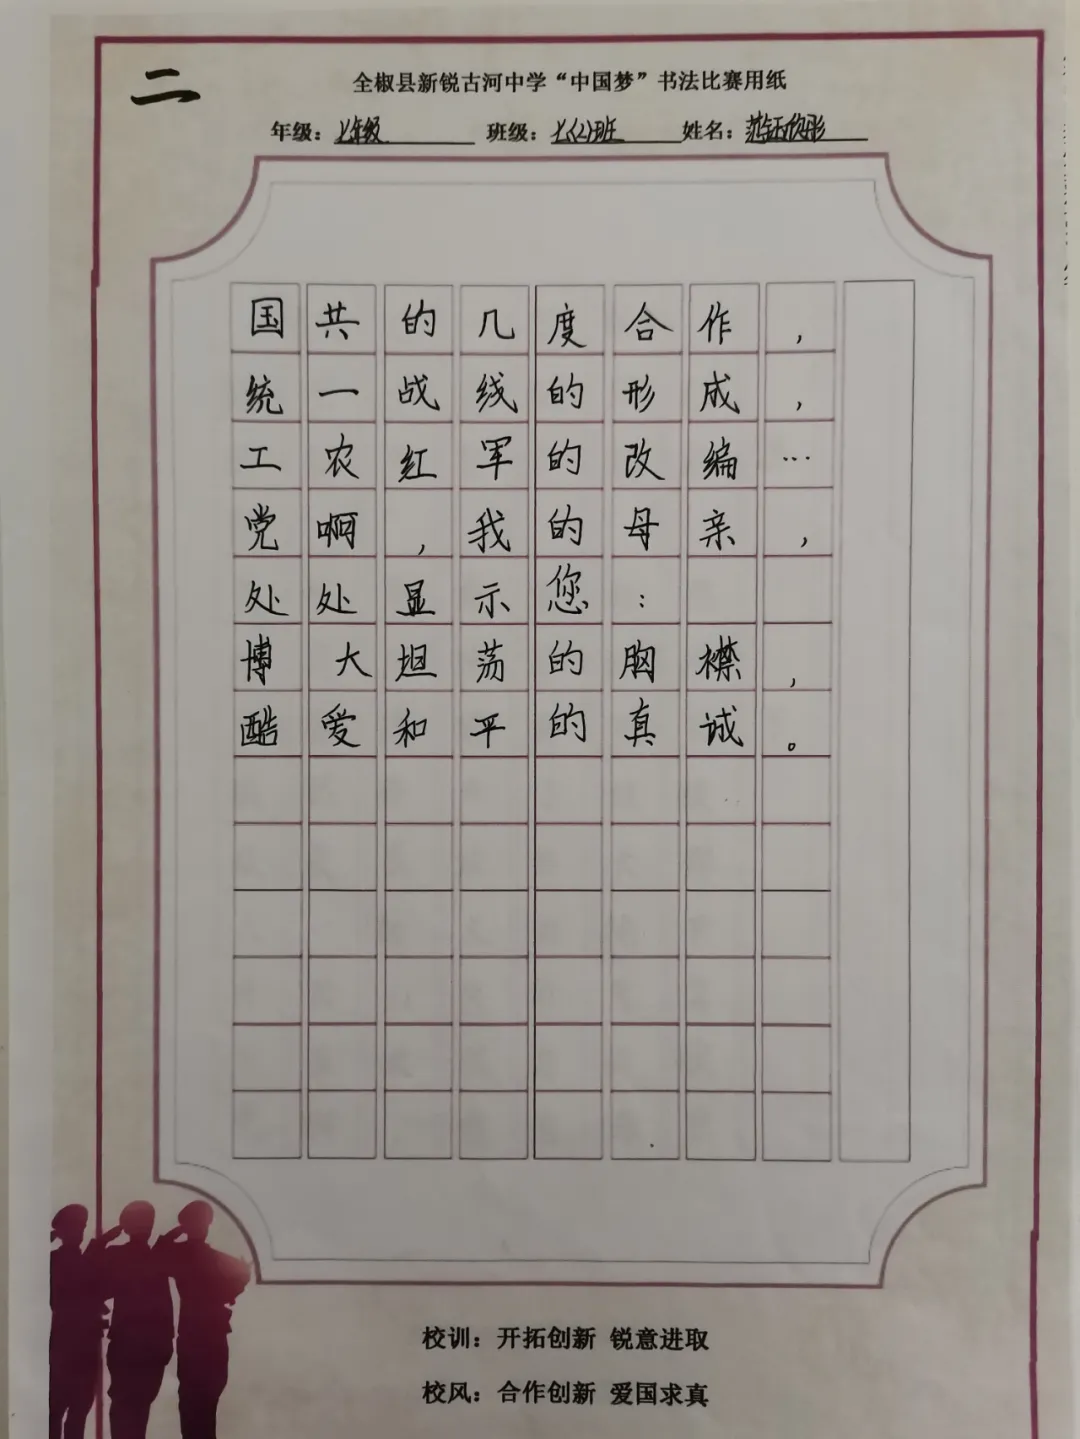 二
全椒县新锐古河中学“中国梦”书法比赛用纸
年级：七年级 班级：七(2)班 姓名：范钰欣彤
国共的几度合作，
统一战线的形成，
工农红军的改编…
党啊，我的母亲，
处处显示您：
博大坦荡的胸襟，
酷爱和平的真诚。
校训：开拓创新 锐意进取
校风：合作创新 爱国求真